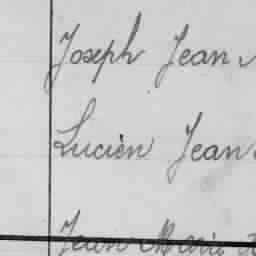 Joseph Jean
Lucien Jean
Jean Marie